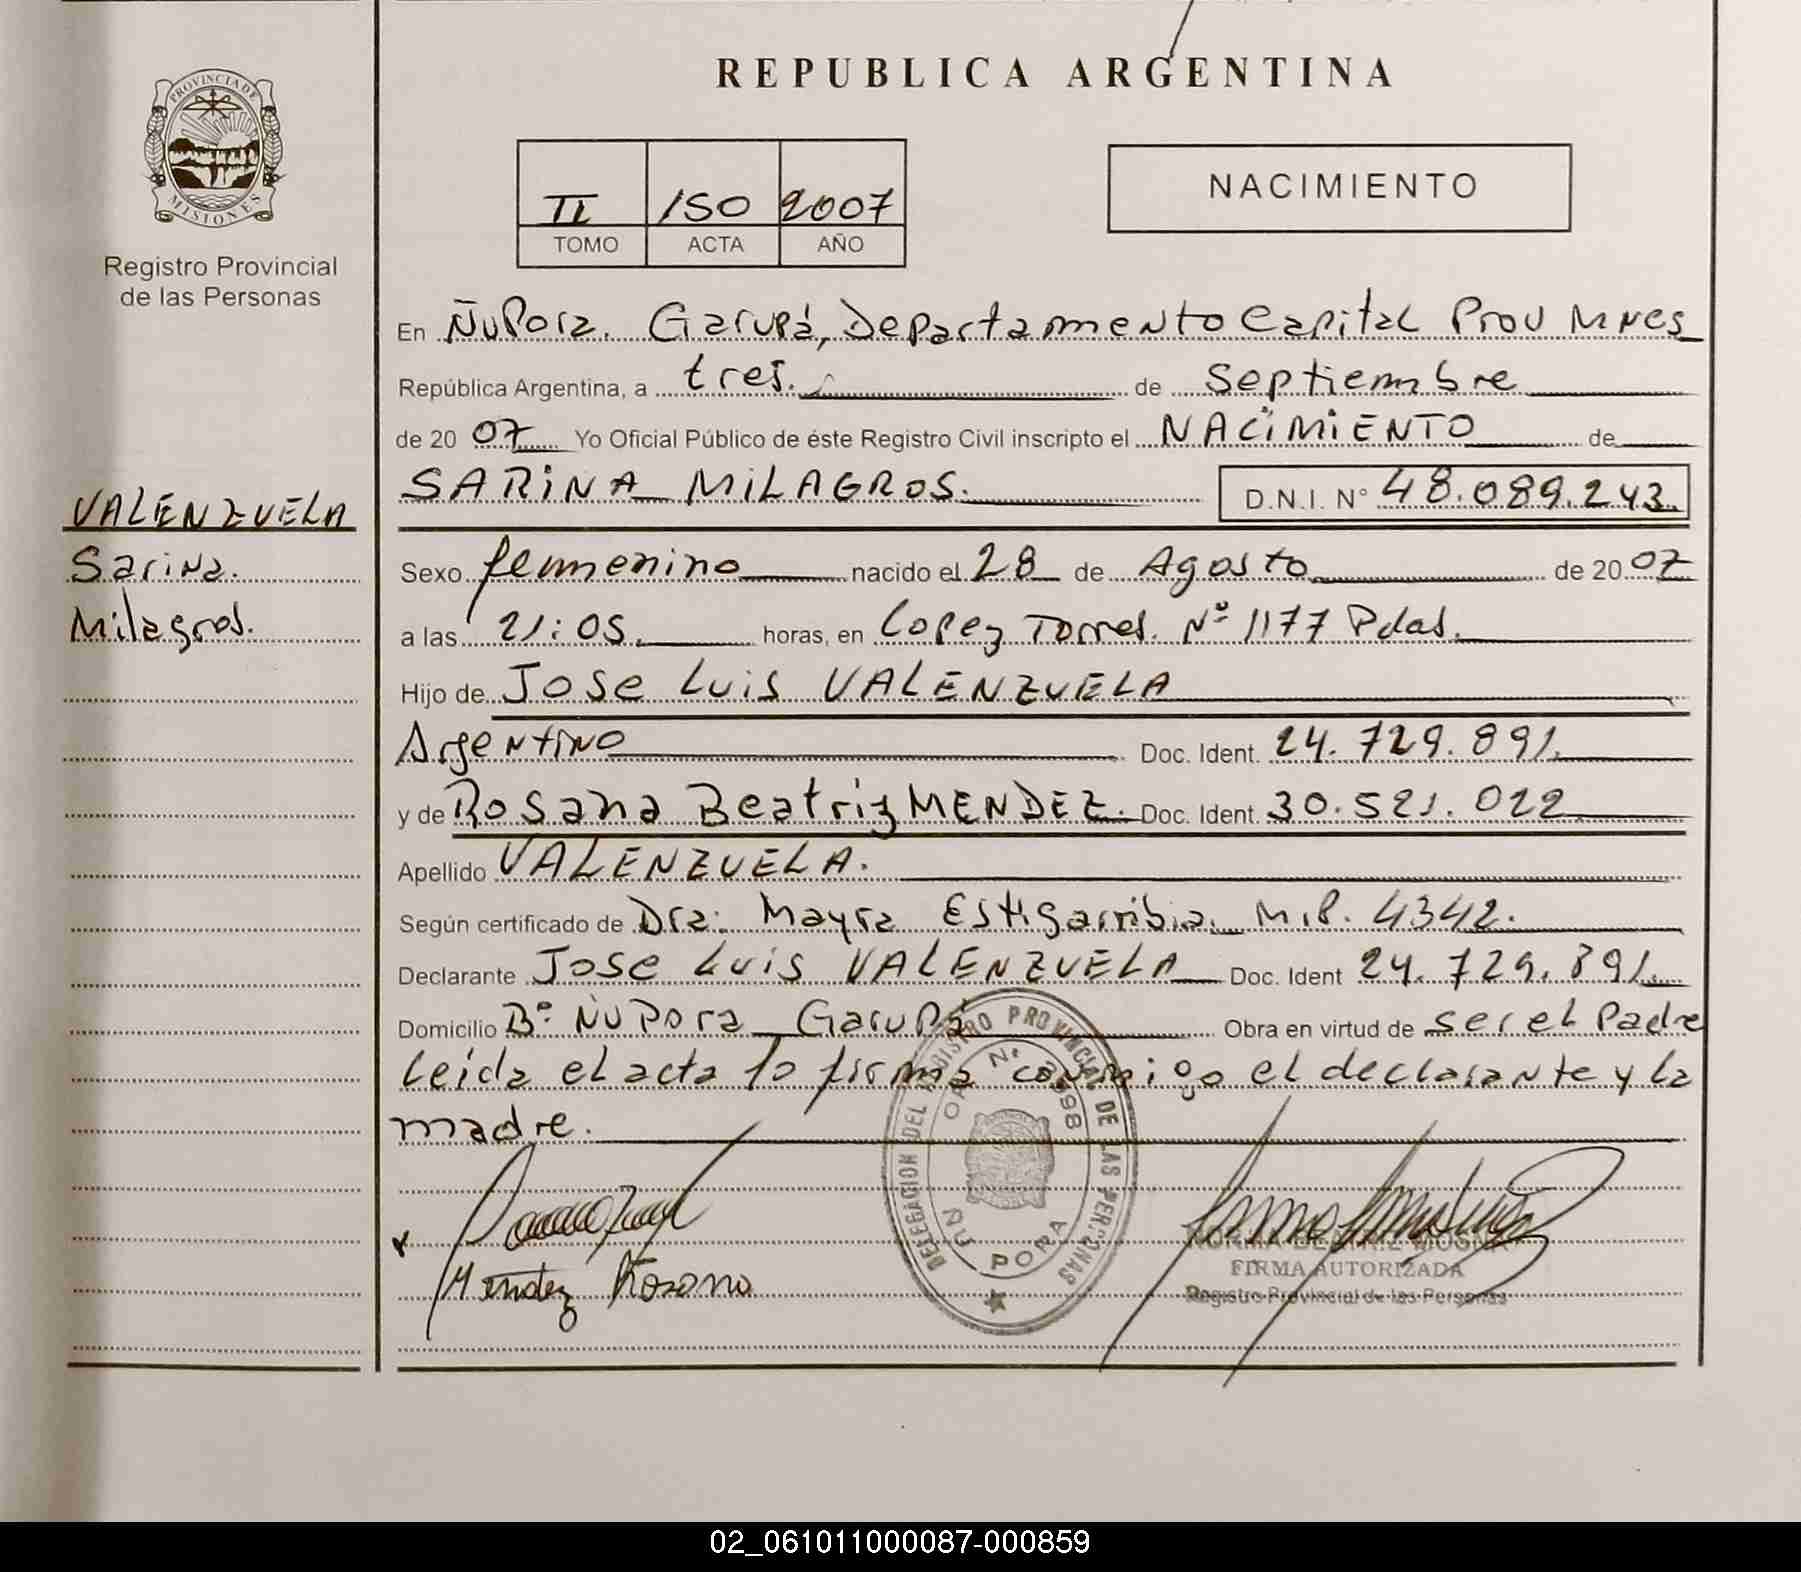 REPUBLICA ARGENTINA
PROVINCIA DE
MISIONES
Registro Provincial
de las Personas
II 150 2007
TOMO ACTA AÑO
NACIMIENTO
En Ñu Pora. Garupá, Departamento Capital Prov Mnes
República Argentina, a tres. de Septiembre
de 20 07 Yo Oficial Público de éste Registro Civil inscripto el NACIMIENTO de
SARINA MILAGROS. D.N.I. N° 48.089.243.
VALENZUELA
Sarina.
Milagros.
Sexo femenino nacido el 28 de Agosto de 20 07
a las 21:05. horas, en Lopez Torres. Nº 1177 Pdas.
Hijo de Jose Luis VALENZUELA
Argentino Doc. Ident. 24.729.891.
y de Rosana Beatriz MENDEZ. Doc. Ident. 30.521.022
Apellido VALENZUELA.
Según certificado de Dra: Mayra Estigarribia. M.P. 4342.
Declarante Jose Luis VALENZUELA Doc. Ident 24.729.891.
Domicilio Bº Ñu Pora Garupá Obra en virtud de ser el Padre
Leida el acta lo firma conmigo el declarante y la
madre.
DELEGACION DEL REGISTRO PROVINCIAL DE LAS PERSONAS
ÑU PORA
Mendez Rosana
NORMA BEATRIZ
FIRMA AUTORIZADA
Registro Provincial de las Personas
02_061011000087-000859